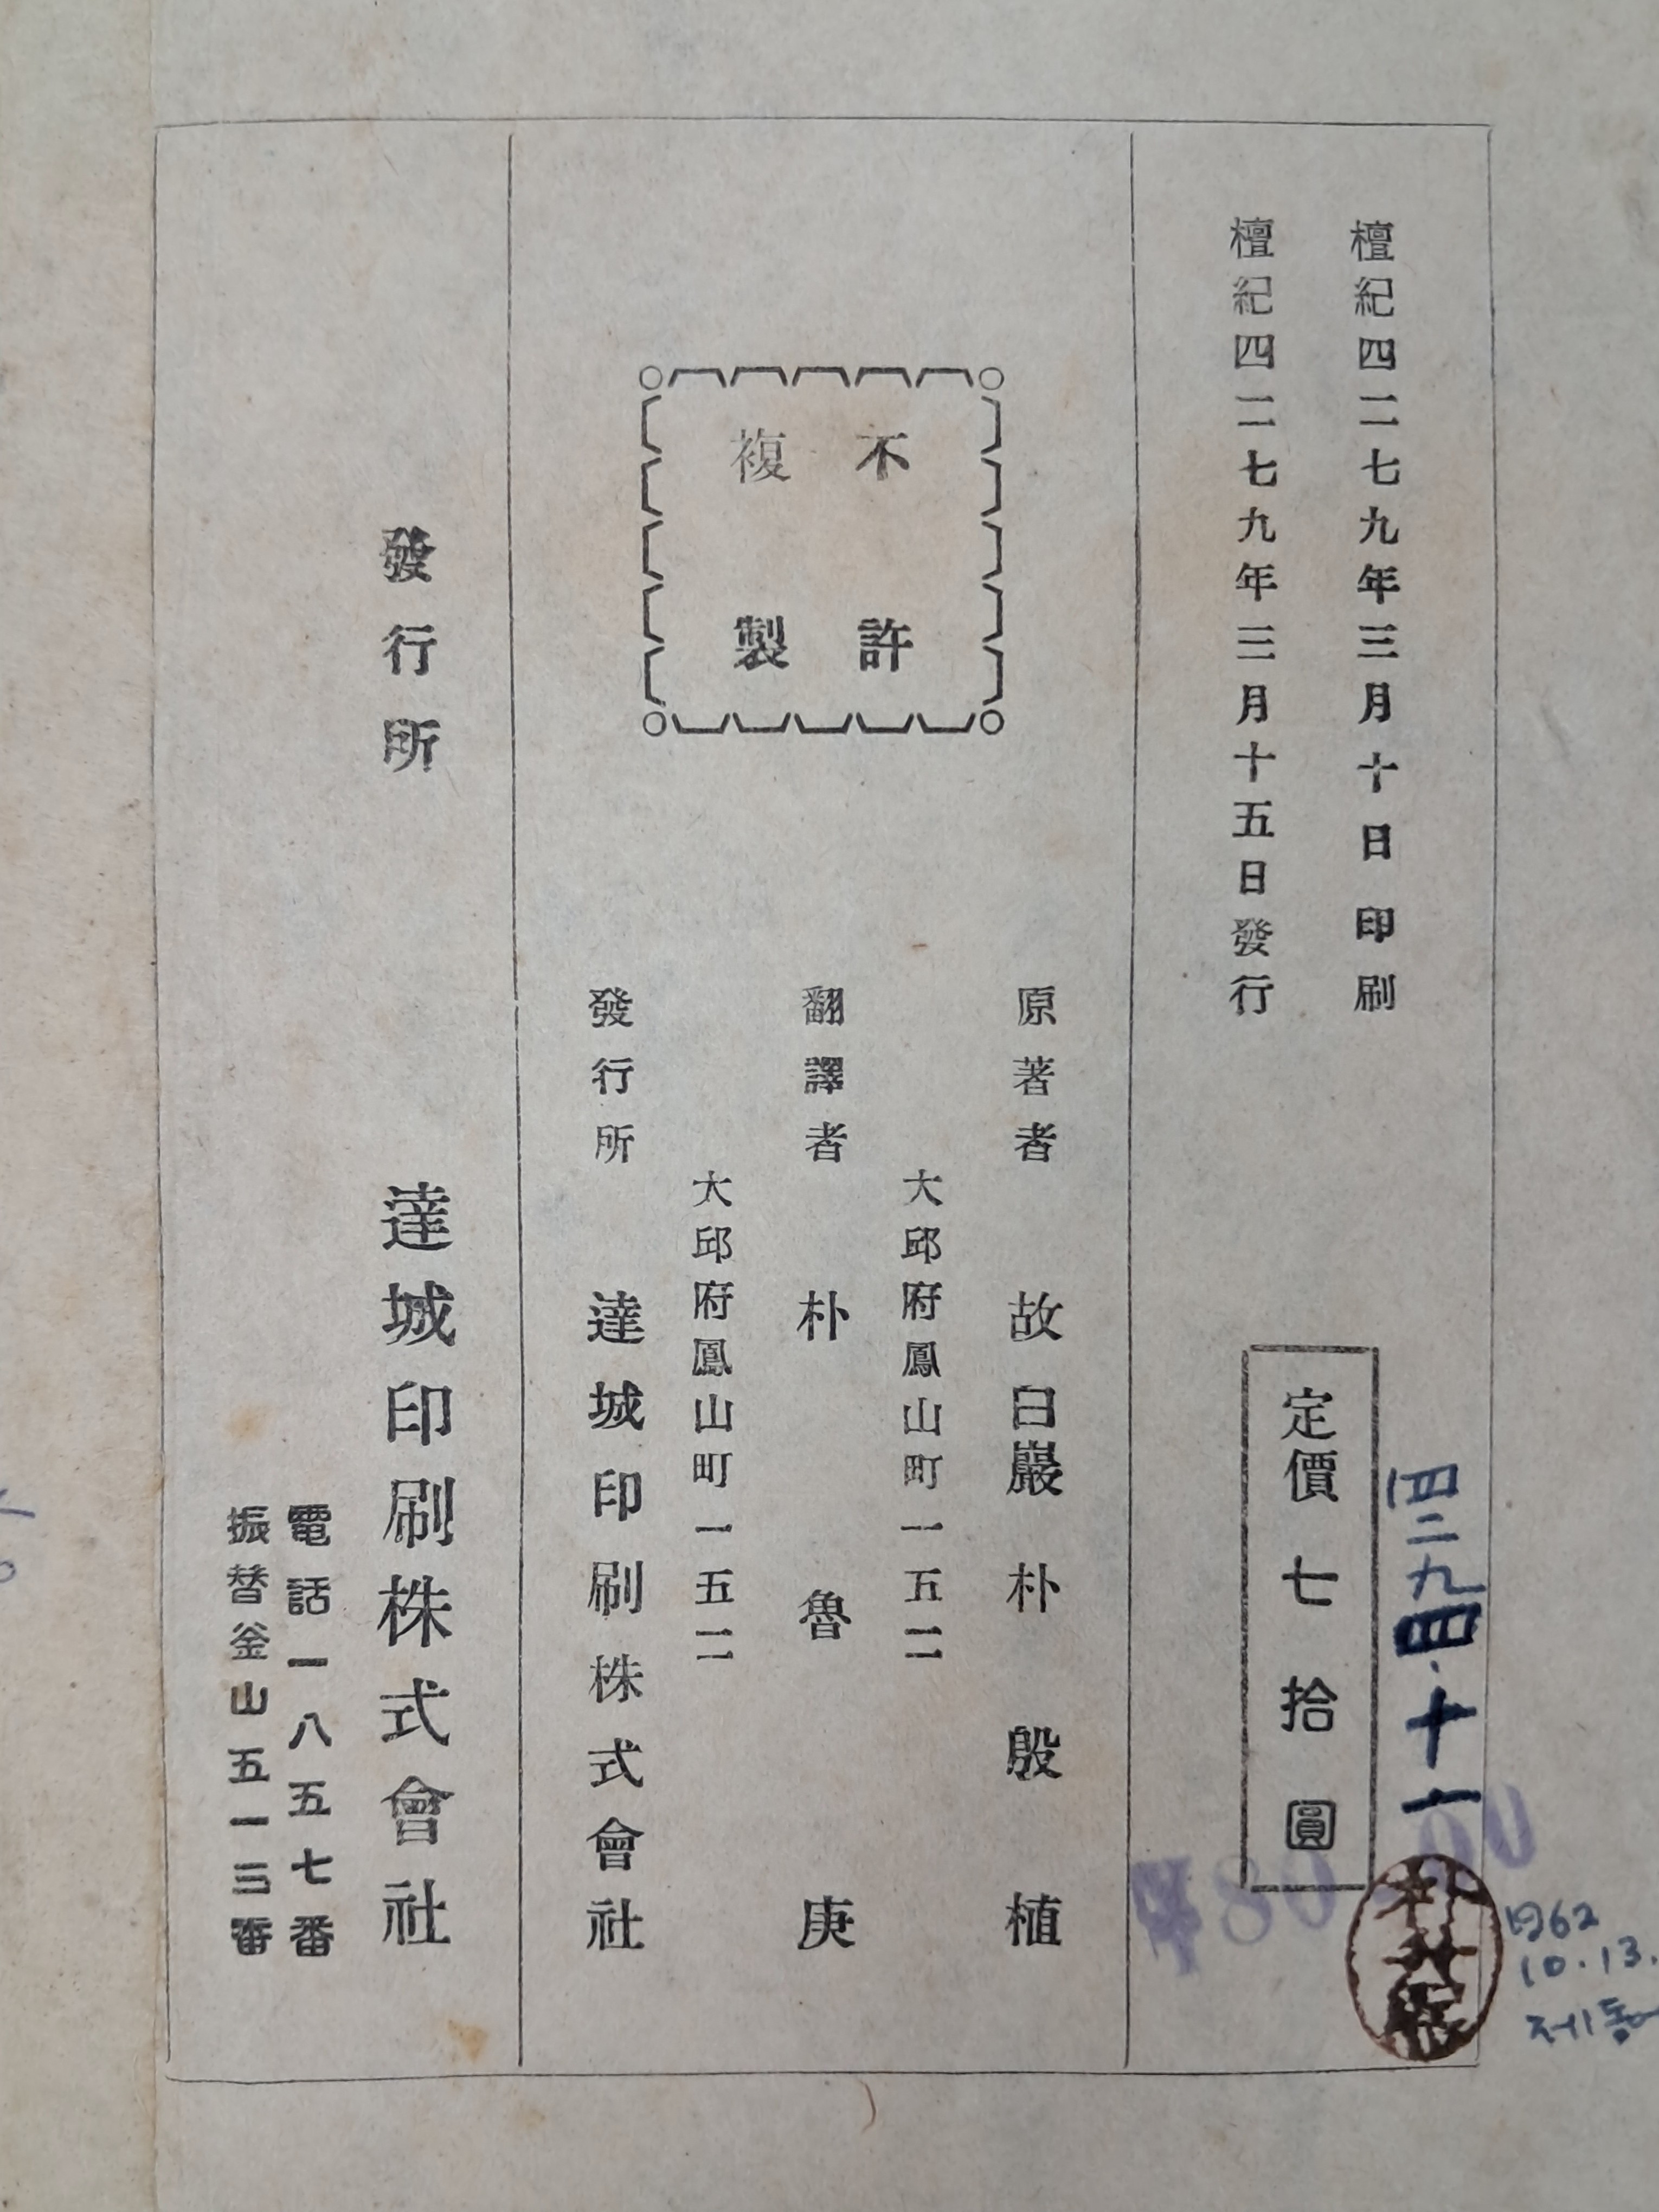 檀紀四二七九年三月十日印刷
檀紀四二七九年三月十五日發行
定價七拾圓
四二九四、十一
1962
10.13.
不許
複製
原著者 故白巖朴殷植
大邱府鳳山町一五二
翻譯者 朴魯庚
大邱府鳳山町一五二
發行所 達城印刷株式會社
發行所 達城印刷株式會社
電話一八五七番
振替釜山五一三番